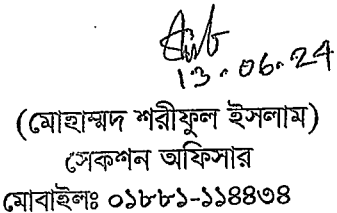 13.06.24
(মোহাম্মদ শরীফুল ইসলাম)
সেকশন অফিসার
মোবাইলঃ ০১৮৮১-১১৪৪৩৪